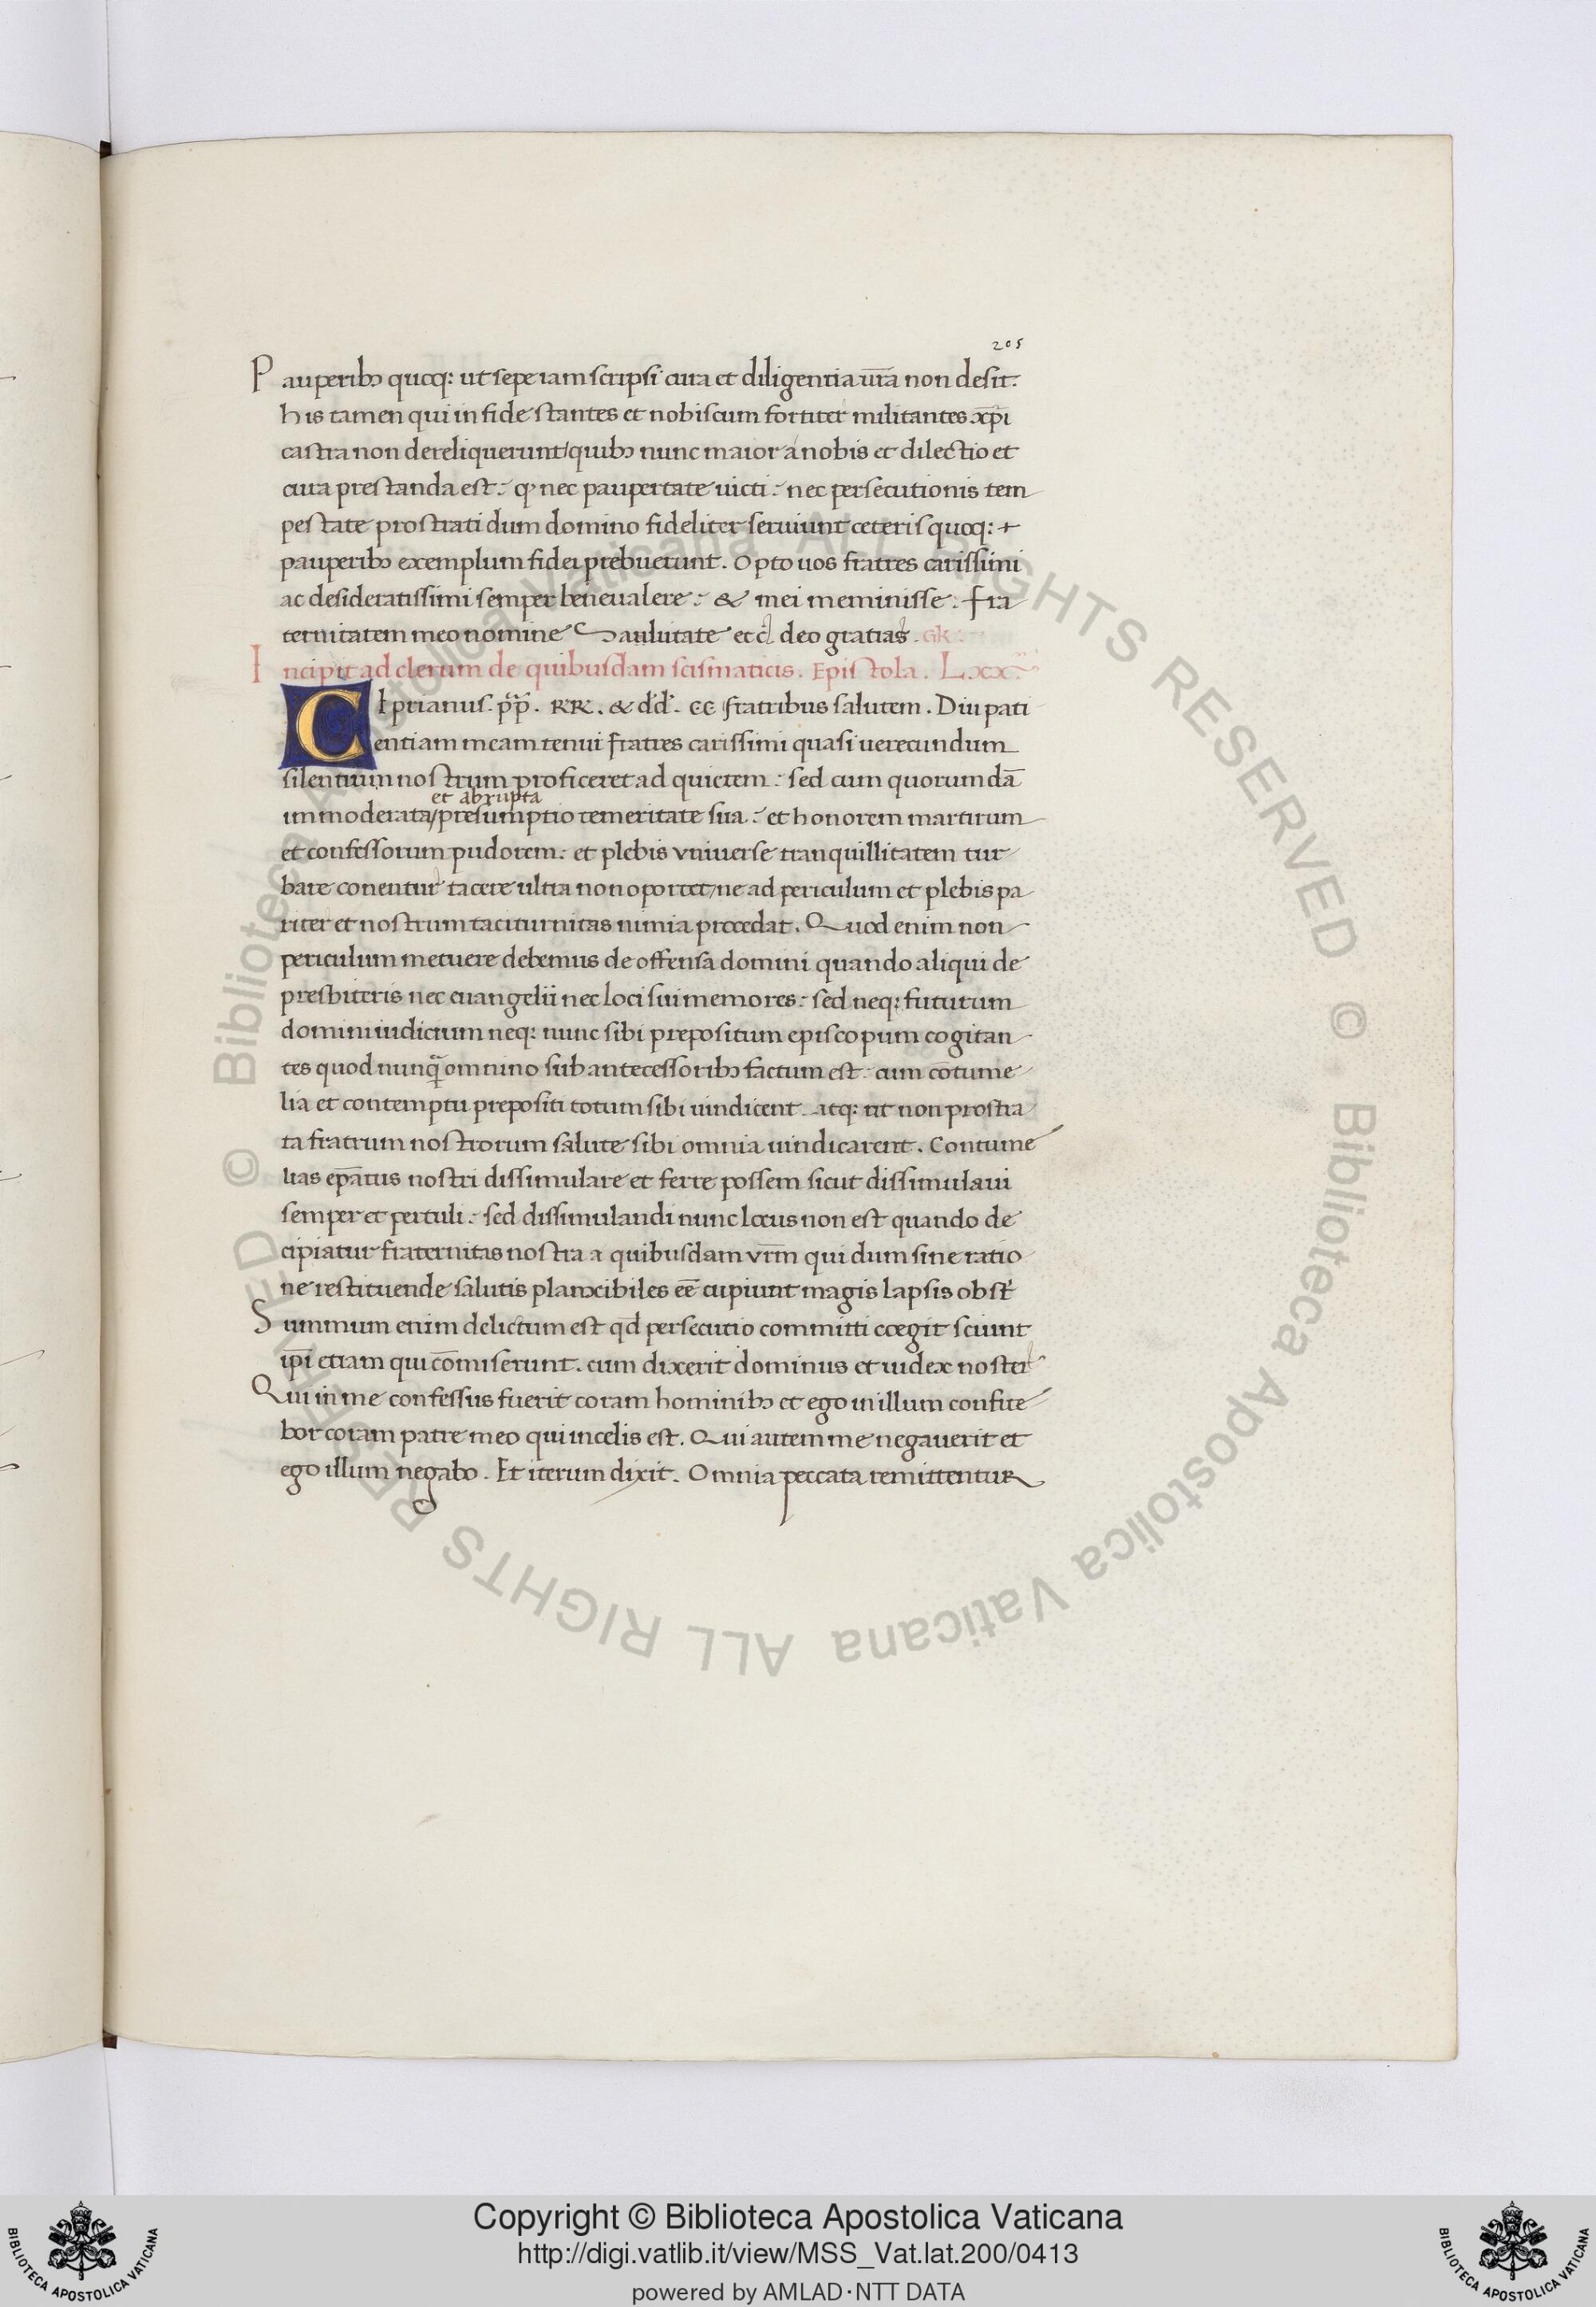 205
Pauperibꝫ quoq: ut sepe iam scripsi cura et diligentia ur̄a non desit.
his tamen qui in fide stantes et nobiscum fortiter militantes xp̄i
castra non dereliquerunt/quibꝫ nunc maior a nobis et dilectio et
cura prestanda est: ꝙ nec paupertate uicti: nec persecutionis tem
pestate prostrati dum domino fideliter seruiunt ceteris quoq: +
pauperibꝫ exemplum fidei prebuerunt. Opto uos fratres carissimi
ac desideratissimi semper bene ualere: & mei meminisse. fra
ternitatem meo nomine Saulutate et c̄ deo gratias.
Incipit ad clerum de quibusdam scismaticis. Epistola. Lxx
CIprianus. p̄p̄. RR. & dd. CC fratribus salutem. Diu pati
entiam meam tenui fratres carissimi quasi uerecundum
silentium nostrum proficeret ad quietem: sed cum quorumdā
et abrupta
immoderata/presumptio temeritate sua: et honorem martirum
et confessorum pudorem: et plebis vniuerse tranquillitatem tur
bare conentur tacere ultra non oportet/ne ad periculum et plebis pa
riter et nostrum taciturnitas nimia procedat. Quod enim non
periculum metuere debemus de offensa domini quando aliqui de
presbiteris nec euangelii nec loci sui memores: sed neq: futurum
domini iudicium neq: nunc sibi prepositum episcopum cogitan
tes quod nunq̄ omnino sub antecessoribꝫ factum est: cum cōtume
lia et contemptu prepositi totum sibi uindicent. atq: ut non prostra
ta fratrum nostrorum salute sibi omnia uindicarent. Contume
lias ep̄atus nostri dissimulare et ferre possem sicut dissimulaui
semper et pertuli: sed dissimulandi nunc locus non est quando de
cipiatur fraternitas nostra a quibusdam vr̄m qui dum sine ratio
ne restituende salutis planocibiles eē cupiunt magis lapsis obst̄
Summum enim delictum est qd̄ persecutio committi coegit sciunt
ip̄i etiam qui cōmiserunt. cum dixerit dominus et iudex noster
Qui in me confessus fuerit coram hominibꝫ et ego in illum confite
bor coram patre meo qui in celis est. Qui autem me negauerit et
ego illum negabo. Et iterum dixit. Omnia peccata remittentur
© Biblioteca Apostolica Vaticana ALL RIGHTS RESERVED
© Biblioteca Apostolica Vaticana ALL RIGHTS RESERVED
Copyright © Biblioteca Apostolica Vaticana
http://digi.vatlib.it/view/MSS_Vat.lat.200/0413
powered by AMLAD·NTT DATA
BIBLIOTECA APOSTOLICA VATICANA
BIBLIOTECA APOSTOLICA VATICANA